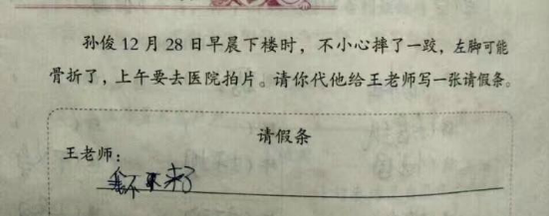 孙俊12月28日早晨下楼时，不小心摔了一跤，左脚可能
骨折了，上午要去医院拍片。请你代他给王老师写一张请假条。
请假条
王老师：
不来了